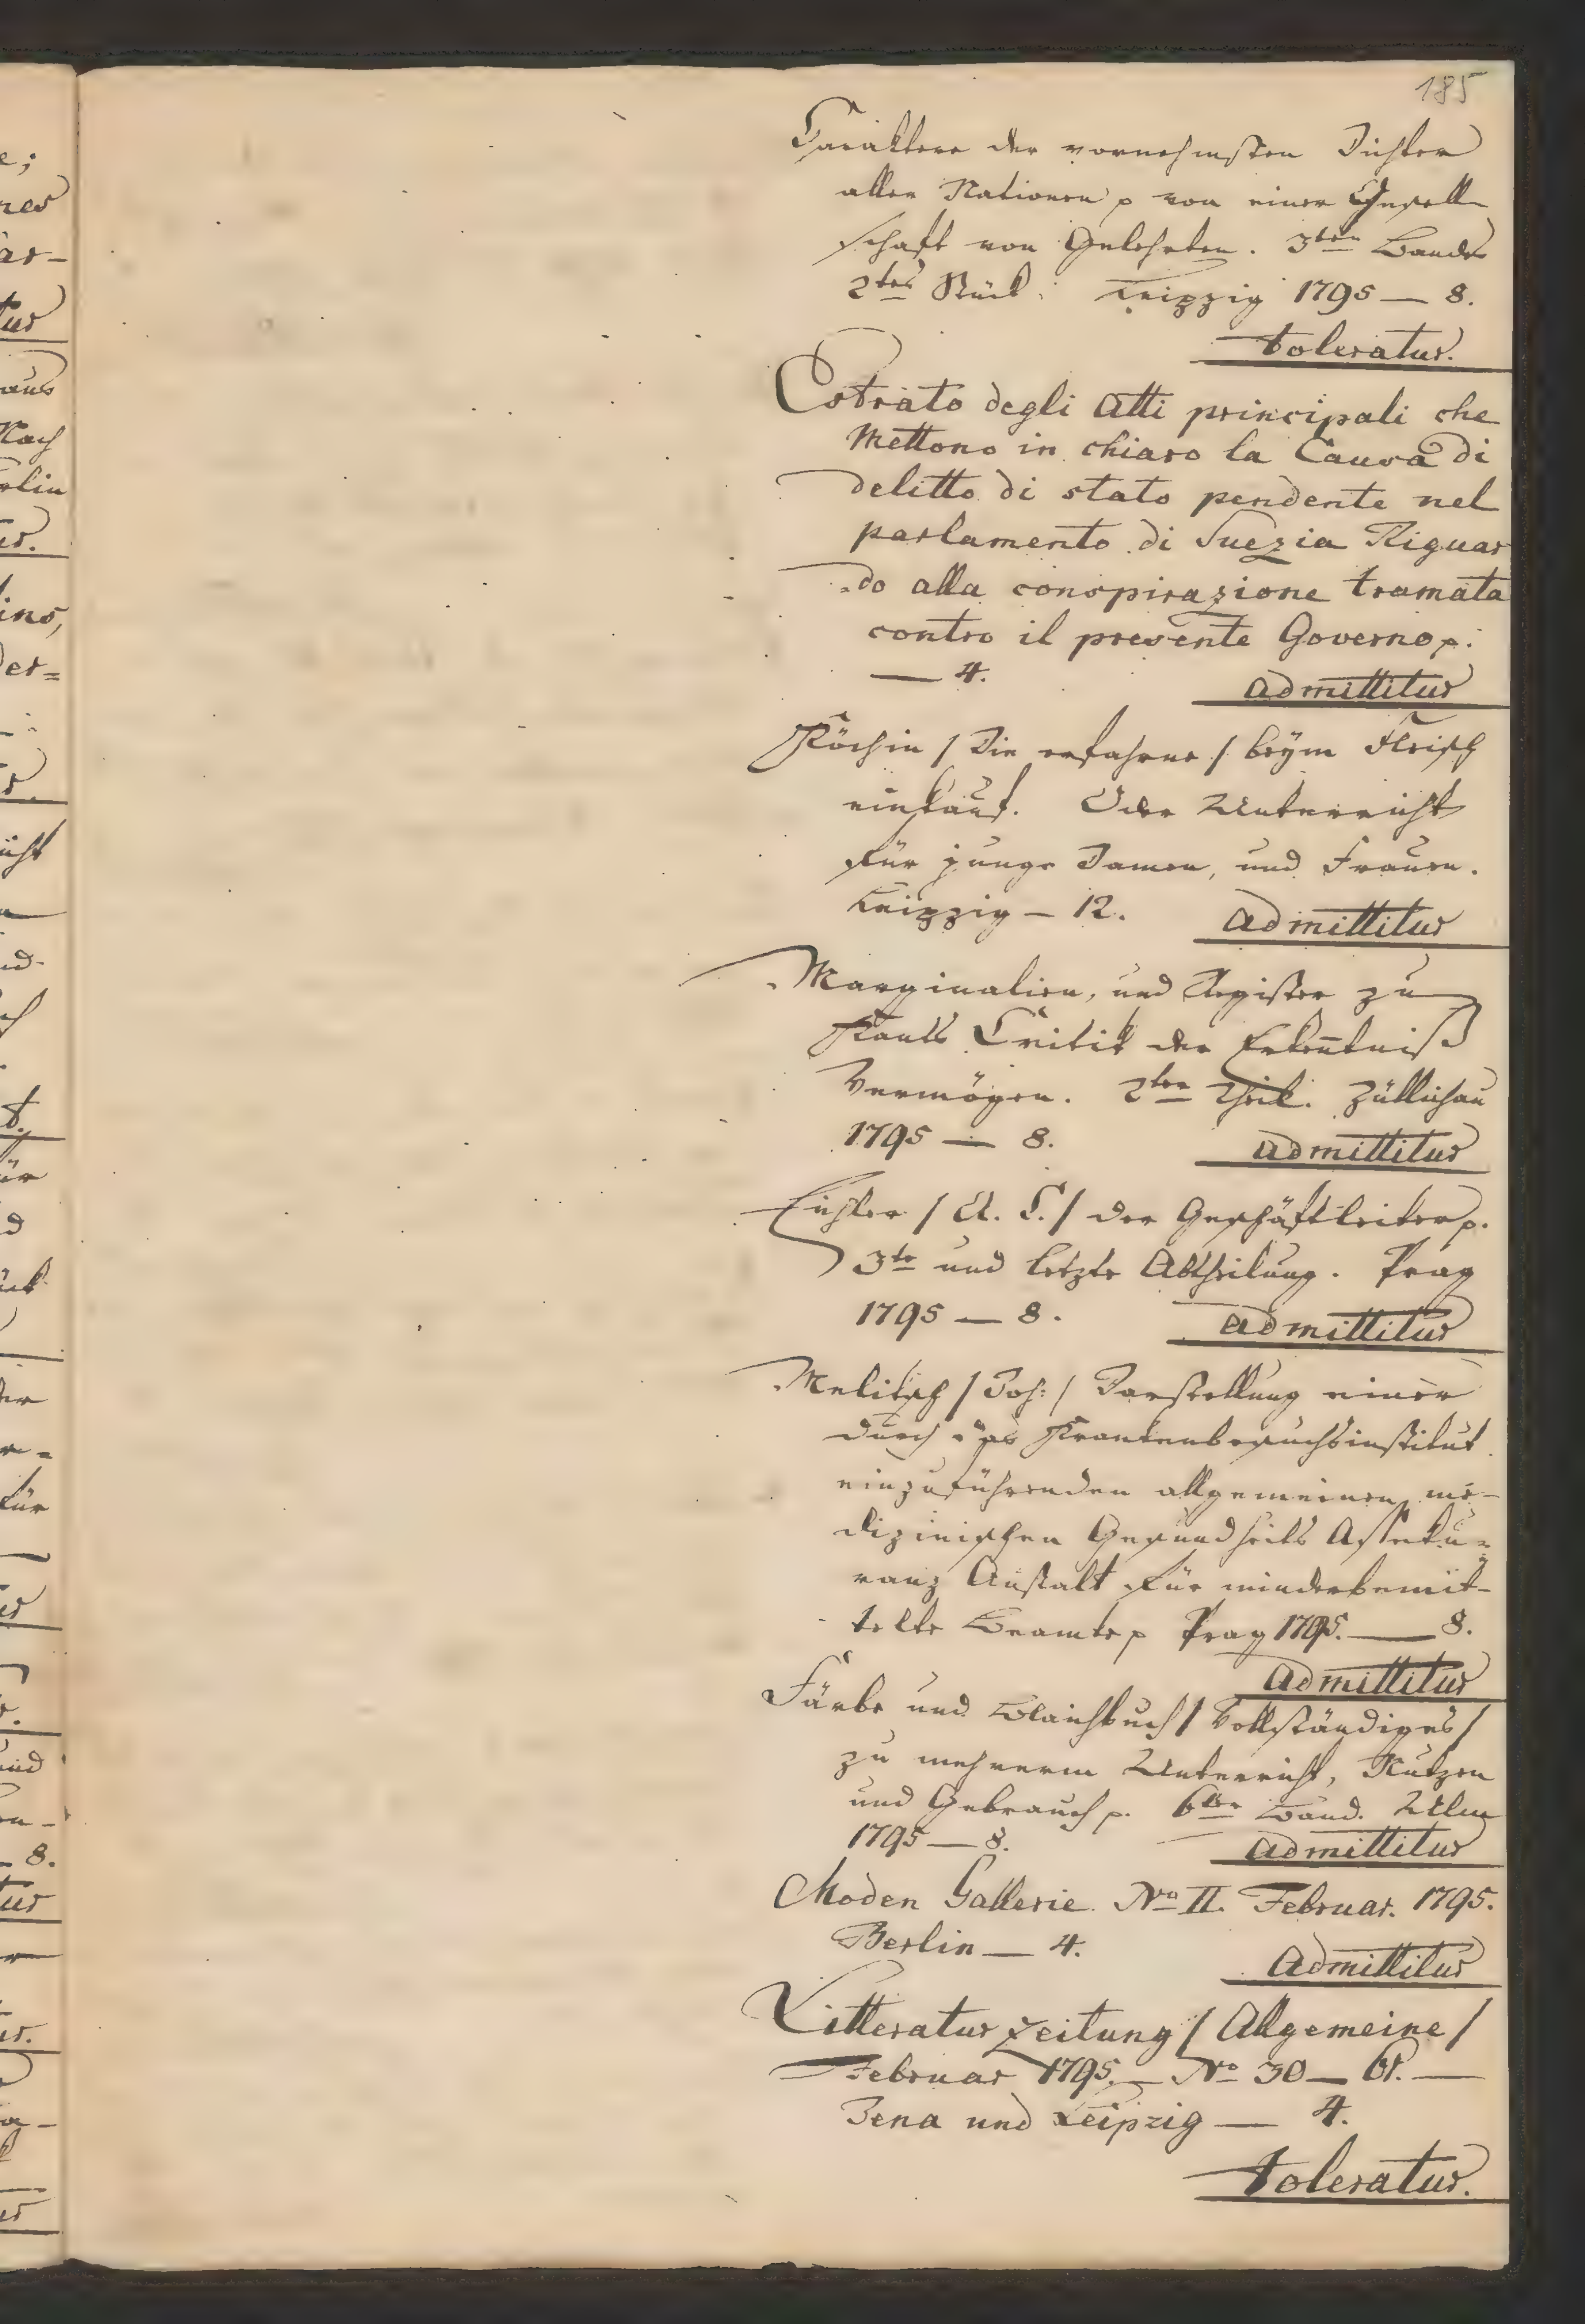 185
Caraktere der vornehmsten Dichter
aller Nationen p von einer Gesell
schaft von Gelehrten. 3ten Bandes
2tes Stück. Leipzig 1795 — 8.
toleratur.
Estrato degli Atti principali che
Mettono in chiaro la Causa di
delitto di stato pendente nel
parlamento di Suezia Riguar
do alla conspirazione tramata
contro il presente Governo p.
— 4.
admittitur
Köchin / Die erfahrne / beÿm Fleisch
einkauf. Oder Unterricht
für junge Damen, und Frauen.
Leipzig — 12.
admittitur
Marginalien, und Register zu
Kants Critik der Erkentniß
Vermögen. 2ter Theil. Züllichau
1795 — 8.
admittitur
Eichler / A. C. / der Geschäftleiter p.
3te und letzte Abtheilung. Prag
1795 — 8.
admittitur
Melitsch / Joh: / Darstellung einer
durch das Krankenbesuchsinstitut
einzuführenden allgemeinen me-
dizinischen Gesundheits Asseku=
ranz Anstalt für minderbemit-
telte Beamte p Prag 1795. — 8.
admittitur
Färbe und Blaichbuch / Vollständiges /
zu mehrerm Unterricht, Nutzen
und Gebrauch p. 6ter Band. Ulm
1795 — 8.
admittitur
Moden Gallerie No II. Februar. 1795.
Berlin — 4.
Admittitur
Litteratur zeitung / Allgemeine /
Februar 1795. — No 30 — 61. —
Jena und Leipzig — 4.
toleratur.